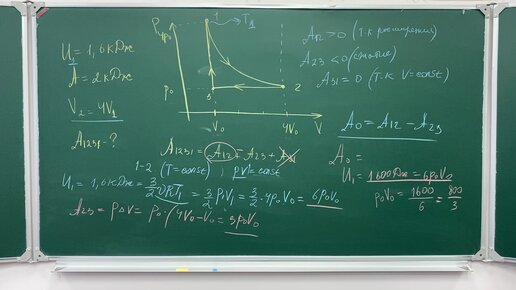 U₁ = 1,6 кДж
A = 2 кДж
V₂ = 4V₁
A₁₂₃₁ - ?
P
4p₀
1
T₁
p₀
3
2
V₀
4V₀
V
A₁₂ > 0 (т.к расширения)
A₂₃ < 0 (сжатие)
A₃₁ = 0 (т.к V = const)
A₀ = A₁₂ - A₂₃
A₁₂₃₁ = A₁₂ - A₂₃ + A₃₁
1-2 (T = const) ; pV = const
U₁ = 1,6 кДж = 3/2 νRT₁ = 3/2 p₁V₁ = 3/2 · 4p₀V₀ = 6p₀V₀
A₂₃ = pΔV = p₀ · (4V₀ - V₀) = 3p₀V₀
A₀ =
U₁ = 1600 Дж = 6p₀V₀
p₀V₀ = 1600/6 = 800/3